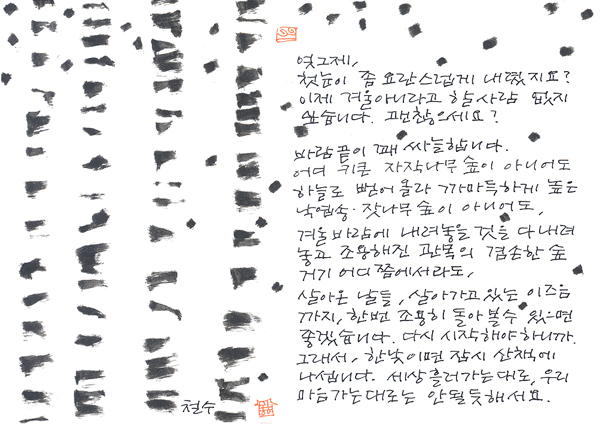 엊그제,
첫눈이 좀 요란스럽게 내렸지요?
이제 겨울아니라고 할사람 없지
싶습니다. 괜찮으세요?
바람끝이 꽤 싸늘합니다.
어디 키큰 자작나무숲이 아니어도
하늘로 뻗어올라 까마득하게 높은
낙엽송·잣나무숲이 아니어도,
겨울바람에 내려놓을 것을 다 내려
놓고 조용해진 관목의 겸손한 숲
거기 어디쯤에서라도,
살아온 날들, 살아가고 있는 이즈음
까지, 한번 조용히 돌아볼수 있으면
좋겠습니다. 다시 시작해야하니까.
그래서, 한낮이면 잠시 산책에
나섭니다. 세상흘러가는대로, 우리
마음가는대로는 안될듯해서요.
철수